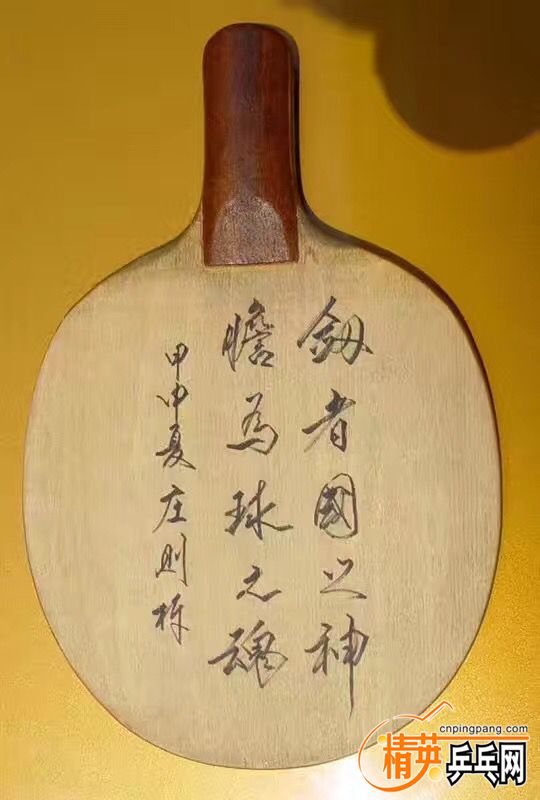 劔者國之神
膽為球之魂
甲申夏庄则栋
cnpingpang.com
精英乒乓网